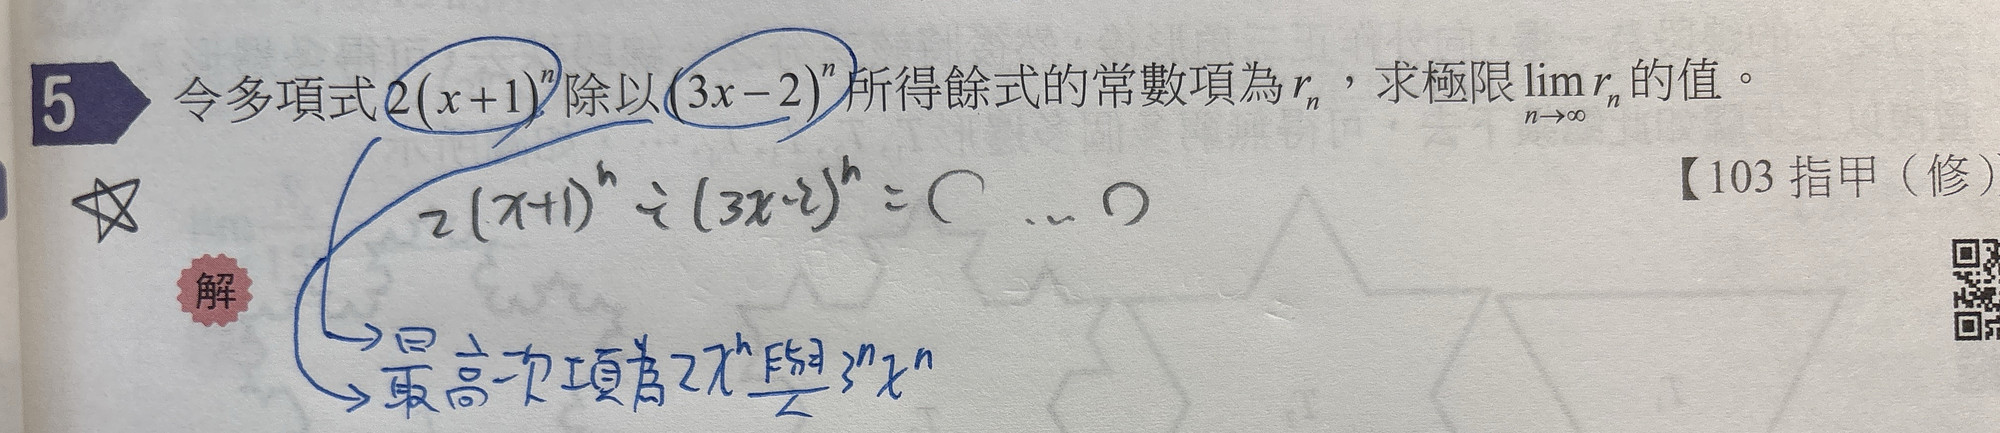 5 令多項式 2(x+1)^n 除以 (3x−2)^n 所得餘式的常數項為 r_n，求極限 lim_{n→∞} r_n 的值。
【103 指甲（修）
2(x+1)^n ÷ (3x-2)^n = ○ … ○
解
→最高次項為2x^n與3^n x^n